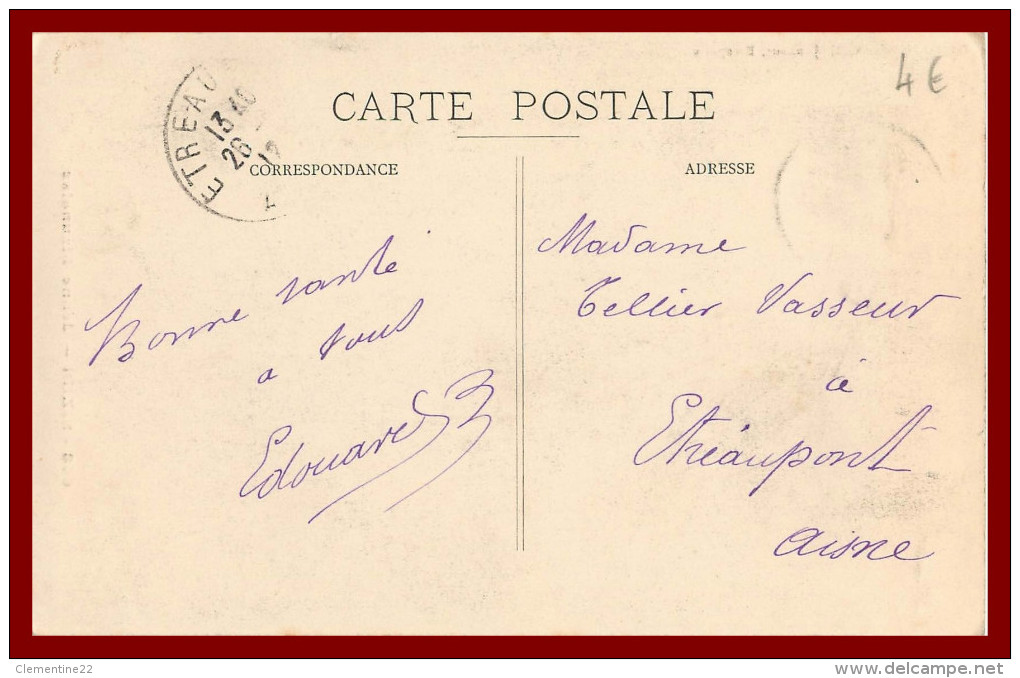 4 €
CARTE POSTALE
ETREAU
13 40
26
CORRESPONDANCE
ADRESSE
Bonne santé
a tous
Edouard
Madame
Tellier Vasseur
à
Etréaupont
Aisne
Clementine22
www.delcampe.net